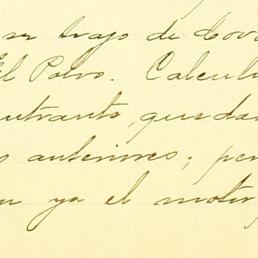 su trajo de Cova
El Polvo. Calcul
entrante, queda
os anteriores; per
n ya el motor